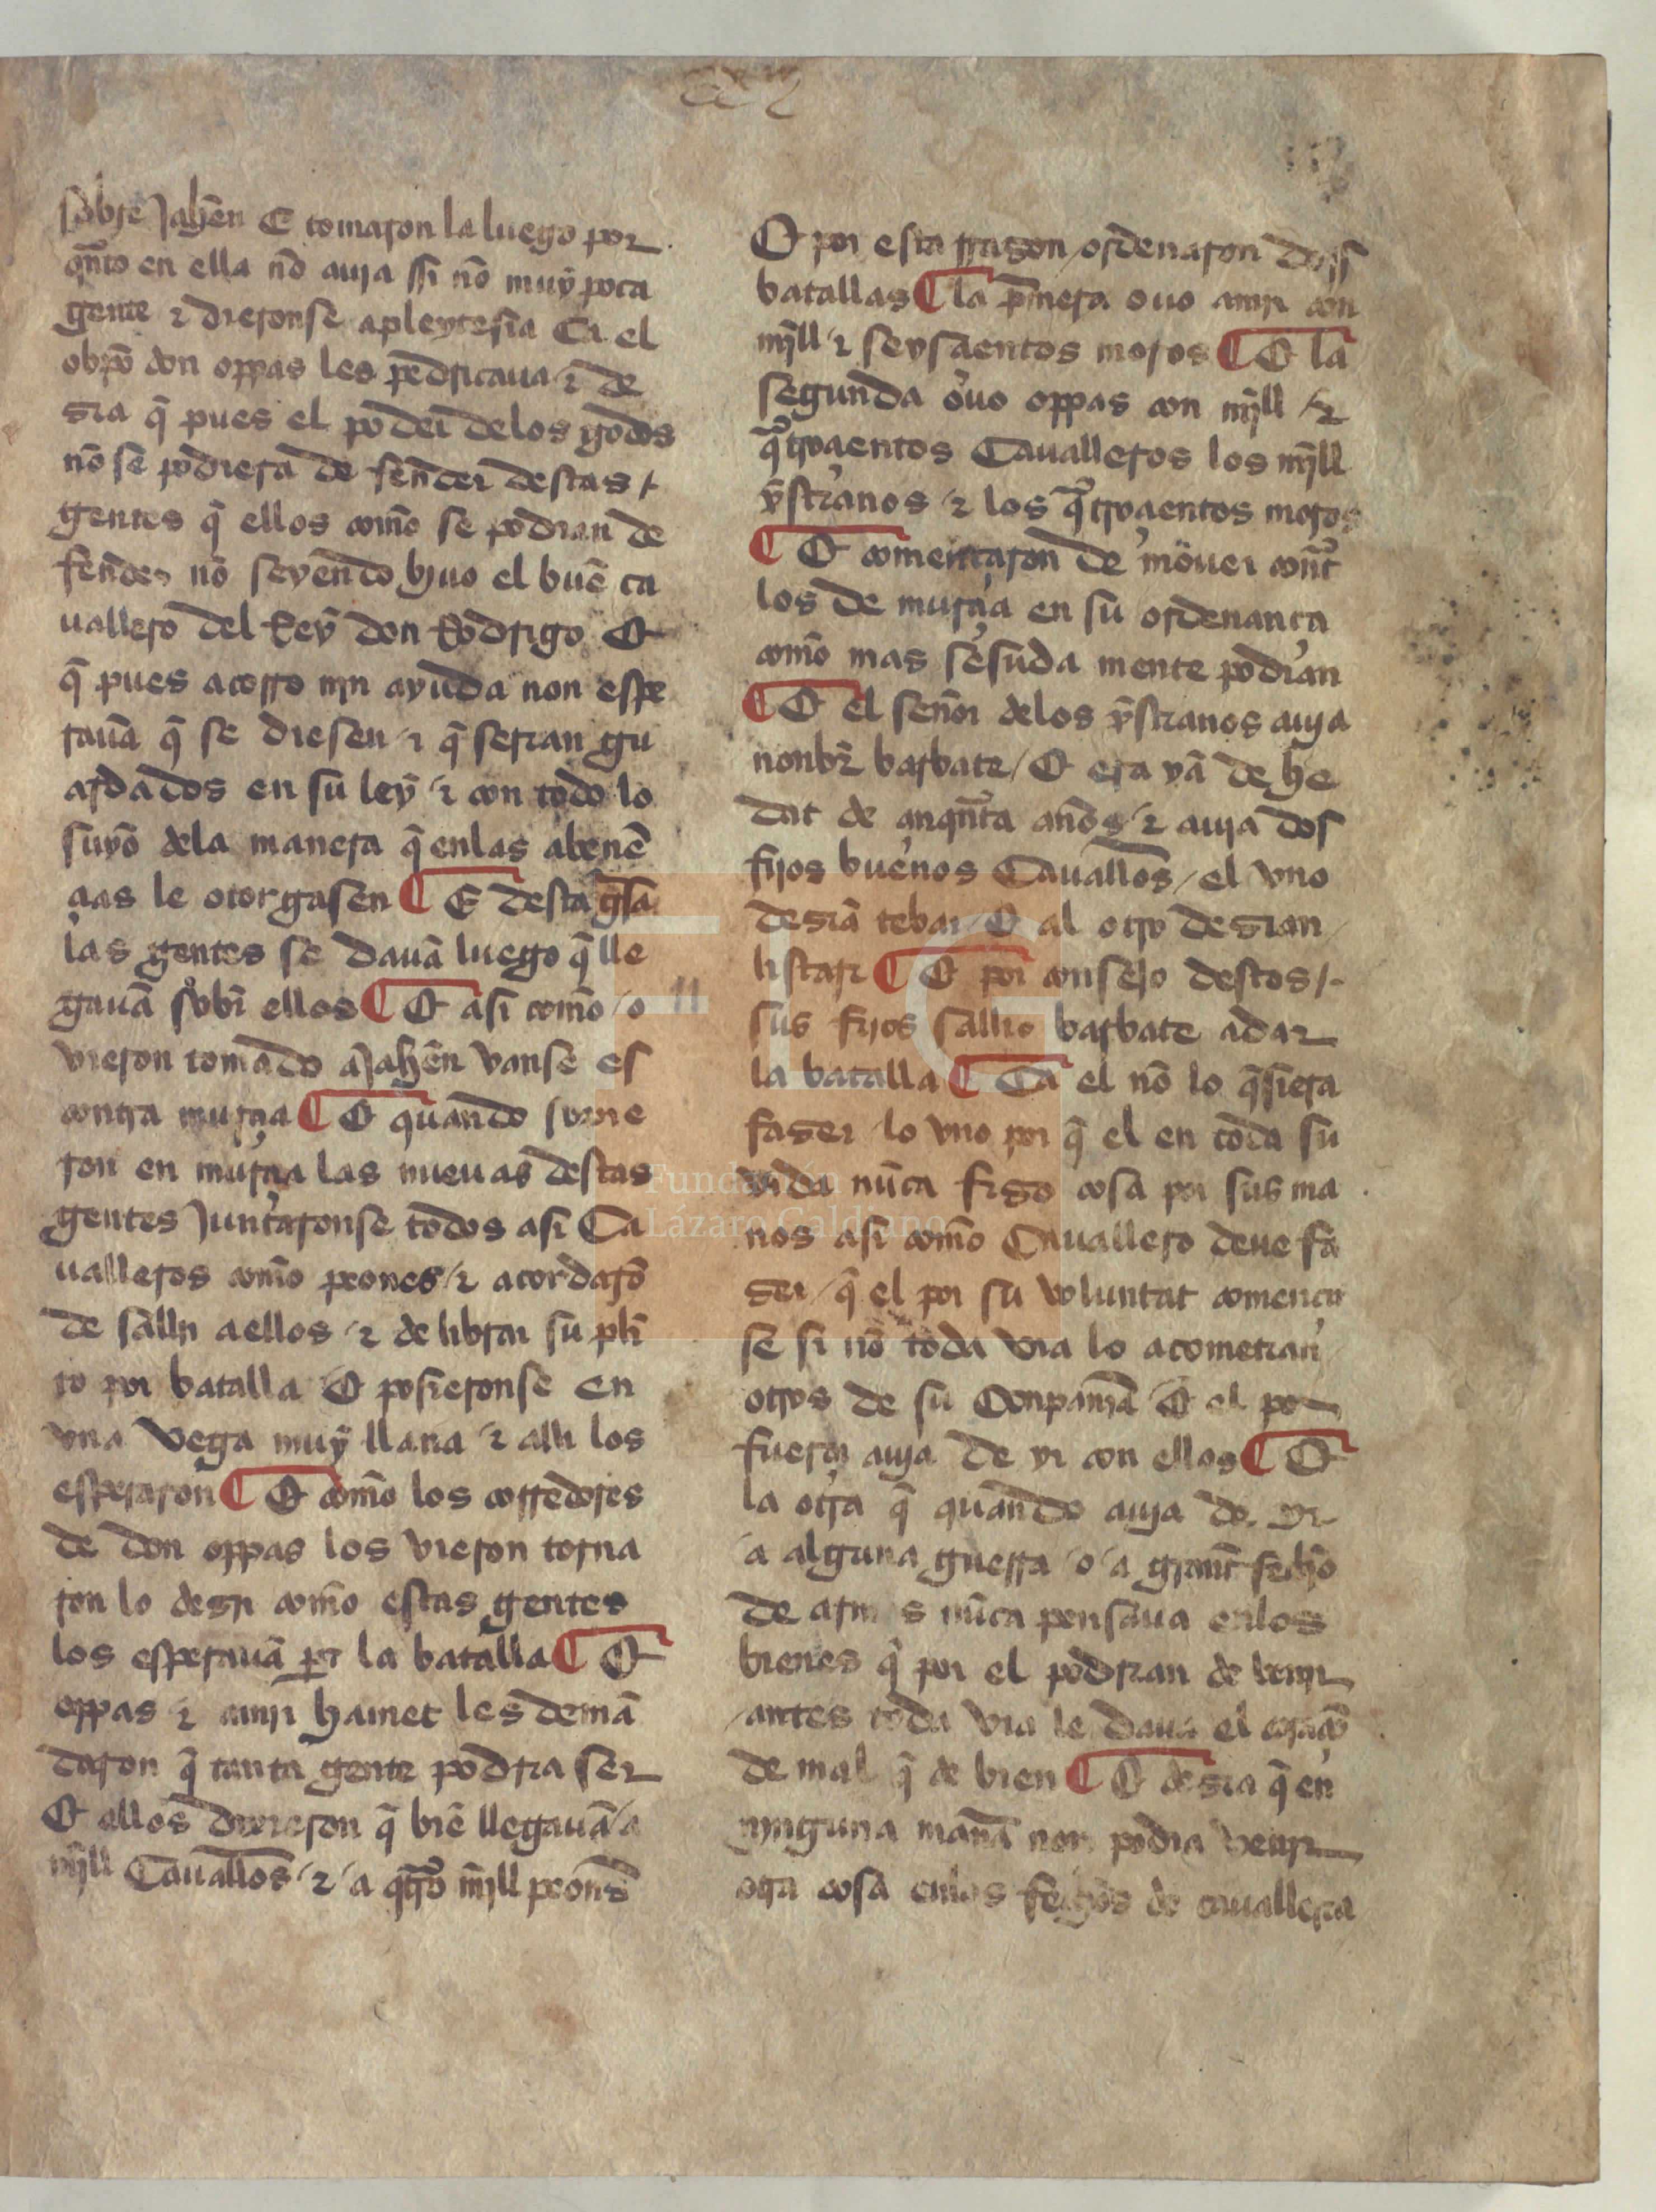 sobre Jahẽn E tomaron la luego por
qñto en ella nõ auja ssi nõ muỹ poca
gente ⁊ dieronse a pleytesia Ca el
obpõ don oppas les pedricaua ⁊ de
zia q̃ pues el poder delos godos
nõ se podiera de fender destas
gentes q̃ ellos comõ se podrian de
fender nõ seyendo biuo el buẽ ca
uallero del Reỹ don Rodrigo E
q̃ pues acorro njn ayuda non espe
rauã q̃ se diesen ⁊ q̃ serian gu
ardados en su leỹ ⁊ con todo lo
suyõ dela manera q̃ enlas abenẽ
çias le otorgasen ¶ E desta gisa
las gentes se dauã luego q̃ lle
gauã sobr̃ ellos ¶ E asi comõ o
vieron tomado a Jahẽn vanse es
contra murçia ¶ E quando sopie
ron en murçia las nueuas destas
gentes Juntaronse todos asi Ca
ualleros comõ peones ⁊ acordarõ
de sallir a ellos ⁊ de librar su plei
to por batalla E posieronse en
vna vega muỹ llana ⁊ alli los
esperaron ¶ E comõ los corredores
de don oppas los vieron torna
ron lo dezir comõ estas gentes
los esperauã par̃ la batalla ¶ E
oppas ⁊ amir hamet les demã
daron q̃ tanta gente podria ser
E ellos dixieron q̃ biẽ llegauã a
mjll Cauallõs ⁊ a q̃tro mjll peones
E por esta rrazon ordenaron doss
batallas ¶ la p̃mera ouo amir con
mjll ⁊ seysçientos moros ¶ E la
segunda ouo oppas con mjll ⁊
q̃troçientos Caualleros los mjll
xp̃stianos ⁊ los q̃troçientos moros
¶ E comentaron de mouer cont̃
los de murçia en su ordenança
comõ mas sesuda mente podian
¶ E el señor delos xp̃stianos auja
nonbr̃ barbate E era yã de he
dat de çinqñta años ⁊ auja dos
fijos buenos Cauallõs el vno
dezian tebar E al otro dezian
listari ¶ E por consejo destos
sus fijos sallio barbate a dar
la batalla ¶ Ca el nõ lo q̃siera
fazer lo vno por q̃ el en toda su
vida nũca fizo cosa por sus ma
nos asi comõ Cauallero deue fa
zer q̃ el por su voluntat comença
se si nõ toda via lo acometian
otros de su Conpanĩa E el por
fuerça auja de yr con ellos ¶ E
la otra q̃ quando auja de yr
a alguna guerra o a grant fecho
de armas nũca pensaua enlos
bienes q̃ por el podrian de venjr
antes toda via le daua el coraçõ
de mal q̃ de bien ¶ E dezia q̃ en
njnguna manã non podia venjr
otra cosa enlos fechos de caualleria
Fundación
Lázaro Galdiano